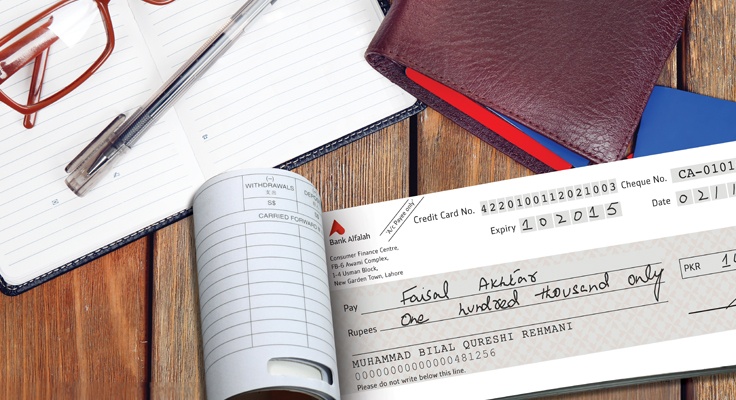 (−)
WITHDRAWALS
S$
CARRIED FORWARD
Bank Alfalah
Consumer Finance Centre,
FB-6 Awami Complex,
1-4 Usman Block,
New Garden Town, Lahore
"A/c Payee only"
Credit Card No. 4220100112021003 Cheque No. CA-0101
Expiry 102015 Date 02/1
Pay Faisal Akhtar
Rupees One hundred thousand only
PKR 10
MUHAMMAD BILAL QURESHI REHMANI
00000000000000481256
Please do not write below this line.